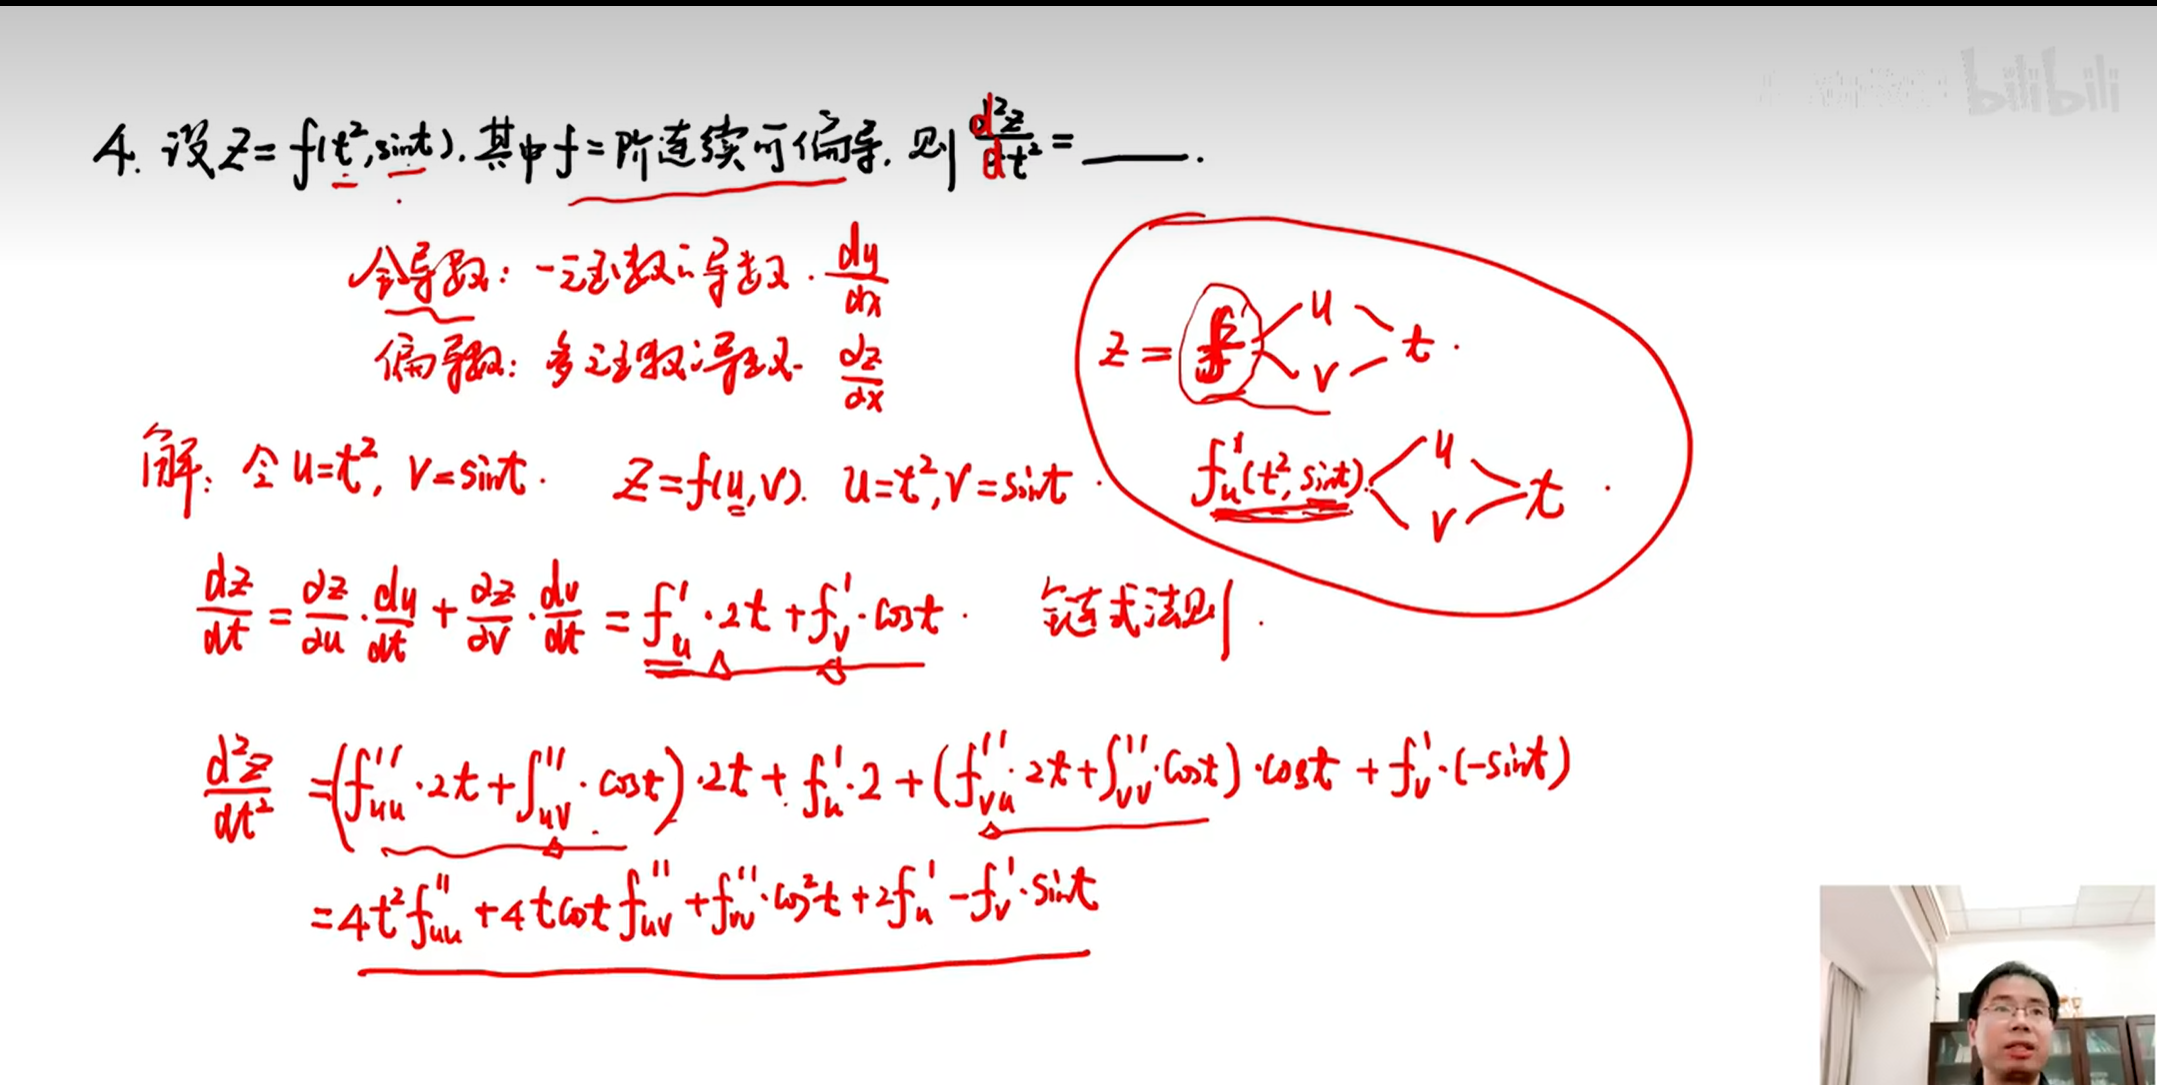 bilibili
4. 设z=f(t²,sint).其中f二阶连续可偏导.则d²z/dt²=____.
全导数:一元函数的导数.dy/dx
偏导数:多元函数的导数.∂z/∂x
z=f u v t.
解:令u=t²,v=sint. z=f(u,v). u=t²,v=sint.
f'u(t²,sint). u v t.
dz/dt=∂z/∂u·du/dt+∂z/∂v·dv/dt=f'u·2t+f'v·cost. 链式法则.
d²z/dt²=(f''uu·2t+f''uv·cost)·2t+f'u·2+(f''vu·2t+f''vv·cost)·cost+f'v·(-sint)
=4t²f''uu+4tcost f''uv+f''vv·cos²t+2f'u-f'v·sint